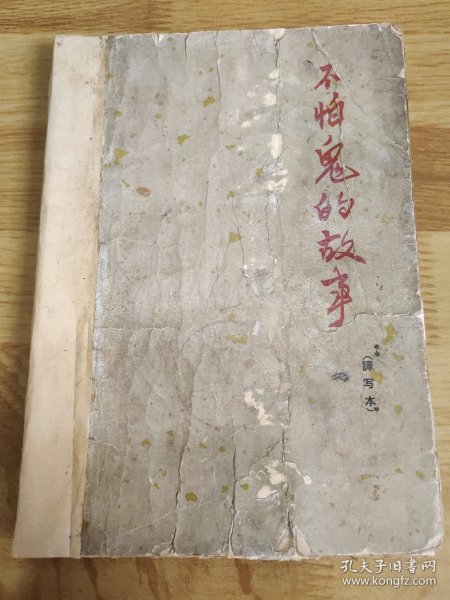 不怕鬼的故事
(譯写本)
孔夫子旧书网
www.kongfz.com